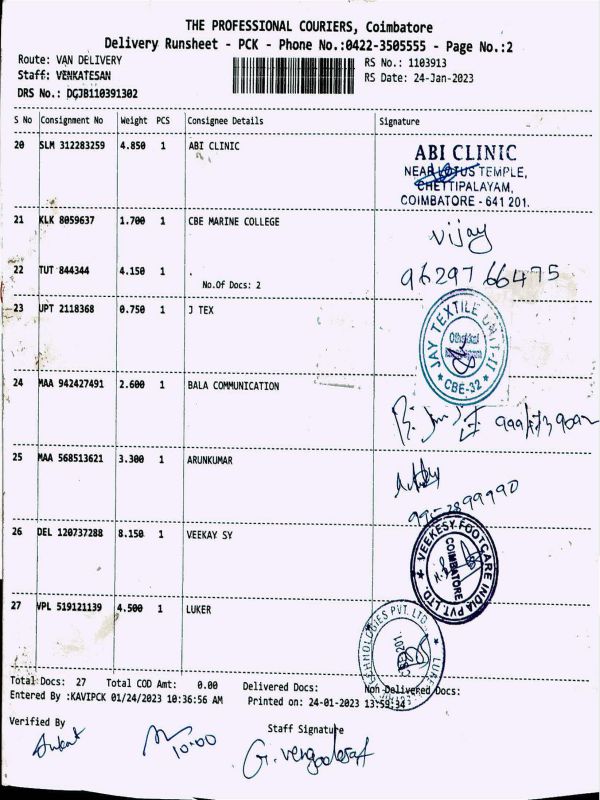 THE PROFESSIONAL COURIERS, Coimbatore
Delivery Runsheet - PCK - Phone No.:0422-3505555 - Page No.:2
Route: VAN DELIVERY
RS No.: 1103913
Staff: VENKATESAN
RS Date: 24-Jan-2023
DRS No.: DGJB110391302
S No Consignment No Weight PCS Consignee Details Signature
20 SLM 312283259 4.850 1 ABI CLINIC
ABI CLINIC
NEAR LOTUS TEMPLE,
CHETTIPALAYAM,
COIMBATORE - 641 201.
21 KLK 8059637 1.700 1 CBE MARINE COLLEGE
Vijay
22 TUT 844344 4.150 1 .
No.Of Docs: 2
96297 66475
23 UPT 2118368 0.750 1 J TEX
JAY TEXTILE UNIT-II
* CBE-32 *
24 MAA 942427491 2.600 1 BALA COMMUNICATION
25 MAA 568513621 3.300 1 ARUNKUMAR
26 DEL 120737288 8.150 1 VEEKAY SY
VEEKESY FOOTCARE INDIA PVT. LTD.
COIMBATORE
27 VPL 519121139 4.500 1 LUKER
LUKER
TECHNOLOGIES PVT. LTD.
Total Docs: 27 Total COD Amt: 0.00 Delivered Docs: Non-Delivered Docs:
Entered By :KAVIPCK 01/24/2023 10:36:56 AM Printed on: 24-01-2023 13:59:34
Verified By
Staff Signature
10:00